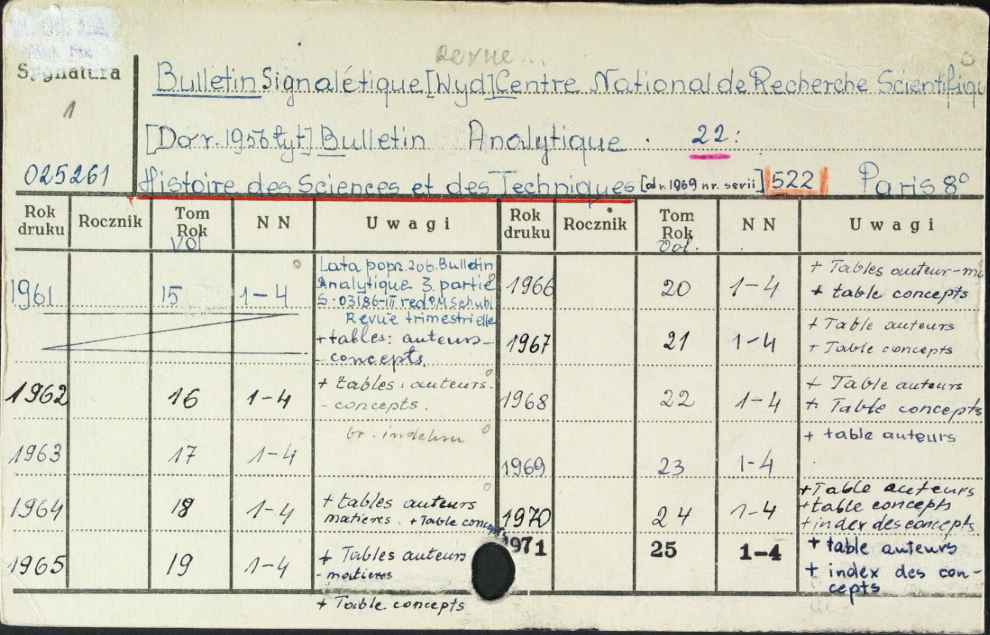 Revue...
Sygnatura
1
025261
Bulletin Signalétique [Wyd] Centre National de Recherche Scientifiqu
[Do r. 1956 tyt] Bulletin Analytique . 22:
Histoire des Sciences et des Techniques [od r. 1969 nr. serii] 522 Paris 8°
Rok druku Rocznik Tom Rok Vol N N Uwagi Rok druku Rocznik Tom Rok Vol. N N Uwagi
1961 15 1-4 Lata popr. zob. Bulletin
Analytique 3 partie
S. 03186-III red. P.M. Schuhl
Revue trimestrielle
+ tables: auteurs-
- concepts.
1962 16 1-4 + tables: auteurs.
- concepts.
1963 17 1-4 br. indeksu
1964 18 1-4 + tables auteurs
matières. + Table concepts
1965 19 1-4 + Tables auteurs
- matières
+ Table concepts
1966 20 1-4 + Tables auteur-
+ table concepts
1967 21 1-4 + Table auteurs
+ Table concepts
1968 22 1-4 + Table auteurs
+ Table concepts
1969 23 1-4 + table auteurs
1970 24 1-4 + Table auteurs
+ table concepts
+ index des concepts
1971 25 1-4 + table auteurs
+ index des con-
cepts